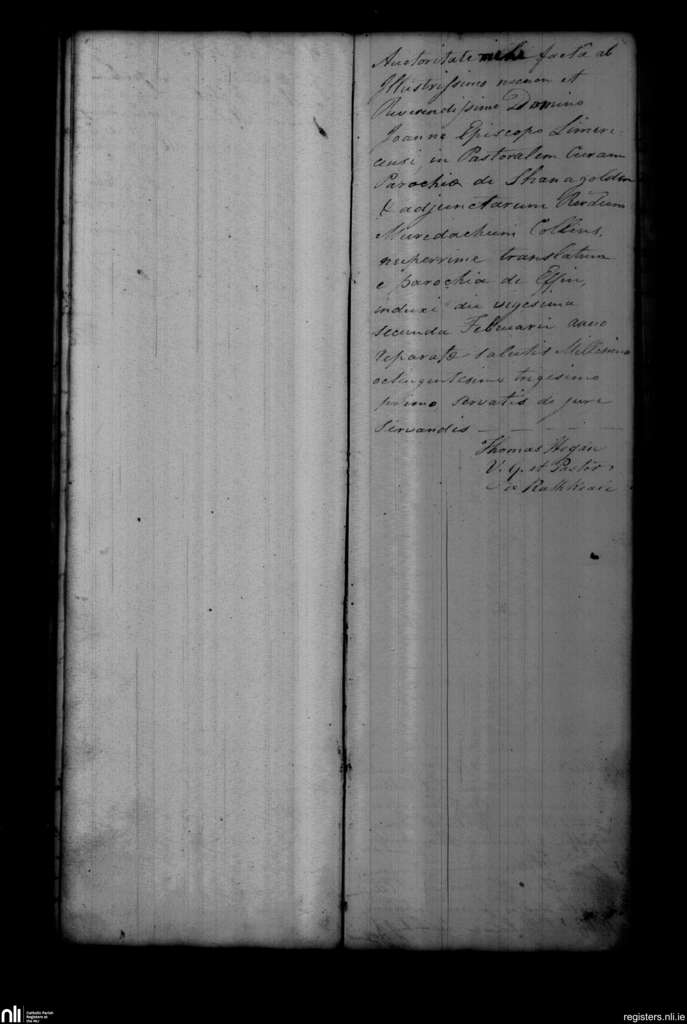 Auctoritate mihi facta ab
Illustrissimo necnon et
Reverendissimo Domino
Joanne Episcopo Limeri-
censi in Pastoralem Curam
Parochiæ de Shanagolden
& adjunctarum Revdum
Muredachum Collins,
nuperrime translatum
e parochia de Effin,
induxi die vigesima
secunda Februarii anno
reparatæ salutis Millesimo
octingentesimo trigesimo
primo servatis de jure
servandis
Thomas Hogan
V. G. et Pastor
de Rathkeale
nli
Catholic Parish
Registers at
the NLI
registers.nli.ie